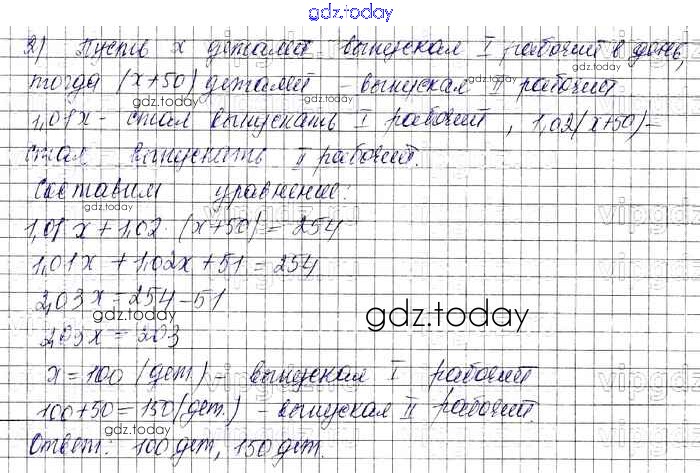 gdz.today
2) Пусть x деталей - выпускал I рабочий в день,
тогда (x+50) деталей - выпускал II рабочий
gdz.today
gdz.today
gdz.today
1,01x - стал выпускать I рабочий, 1,02(x+50) -
gdz.today
стал выпускать II рабочий.
Составим уравнение:
gdz.today
1,01x + 1,02 · (x+50) = 254
gdz.today
1,01x + 1,02x + 51 = 254
2,03x = 254 - 51
gdz.today
2,03x = 203
x = 100 (дет.) - выпускал I рабочий
gdz.today
100 + 50 = 150 (дет.) - выпускал II рабочий.
gdz.today
Ответ: 100 дет, 150 дет.